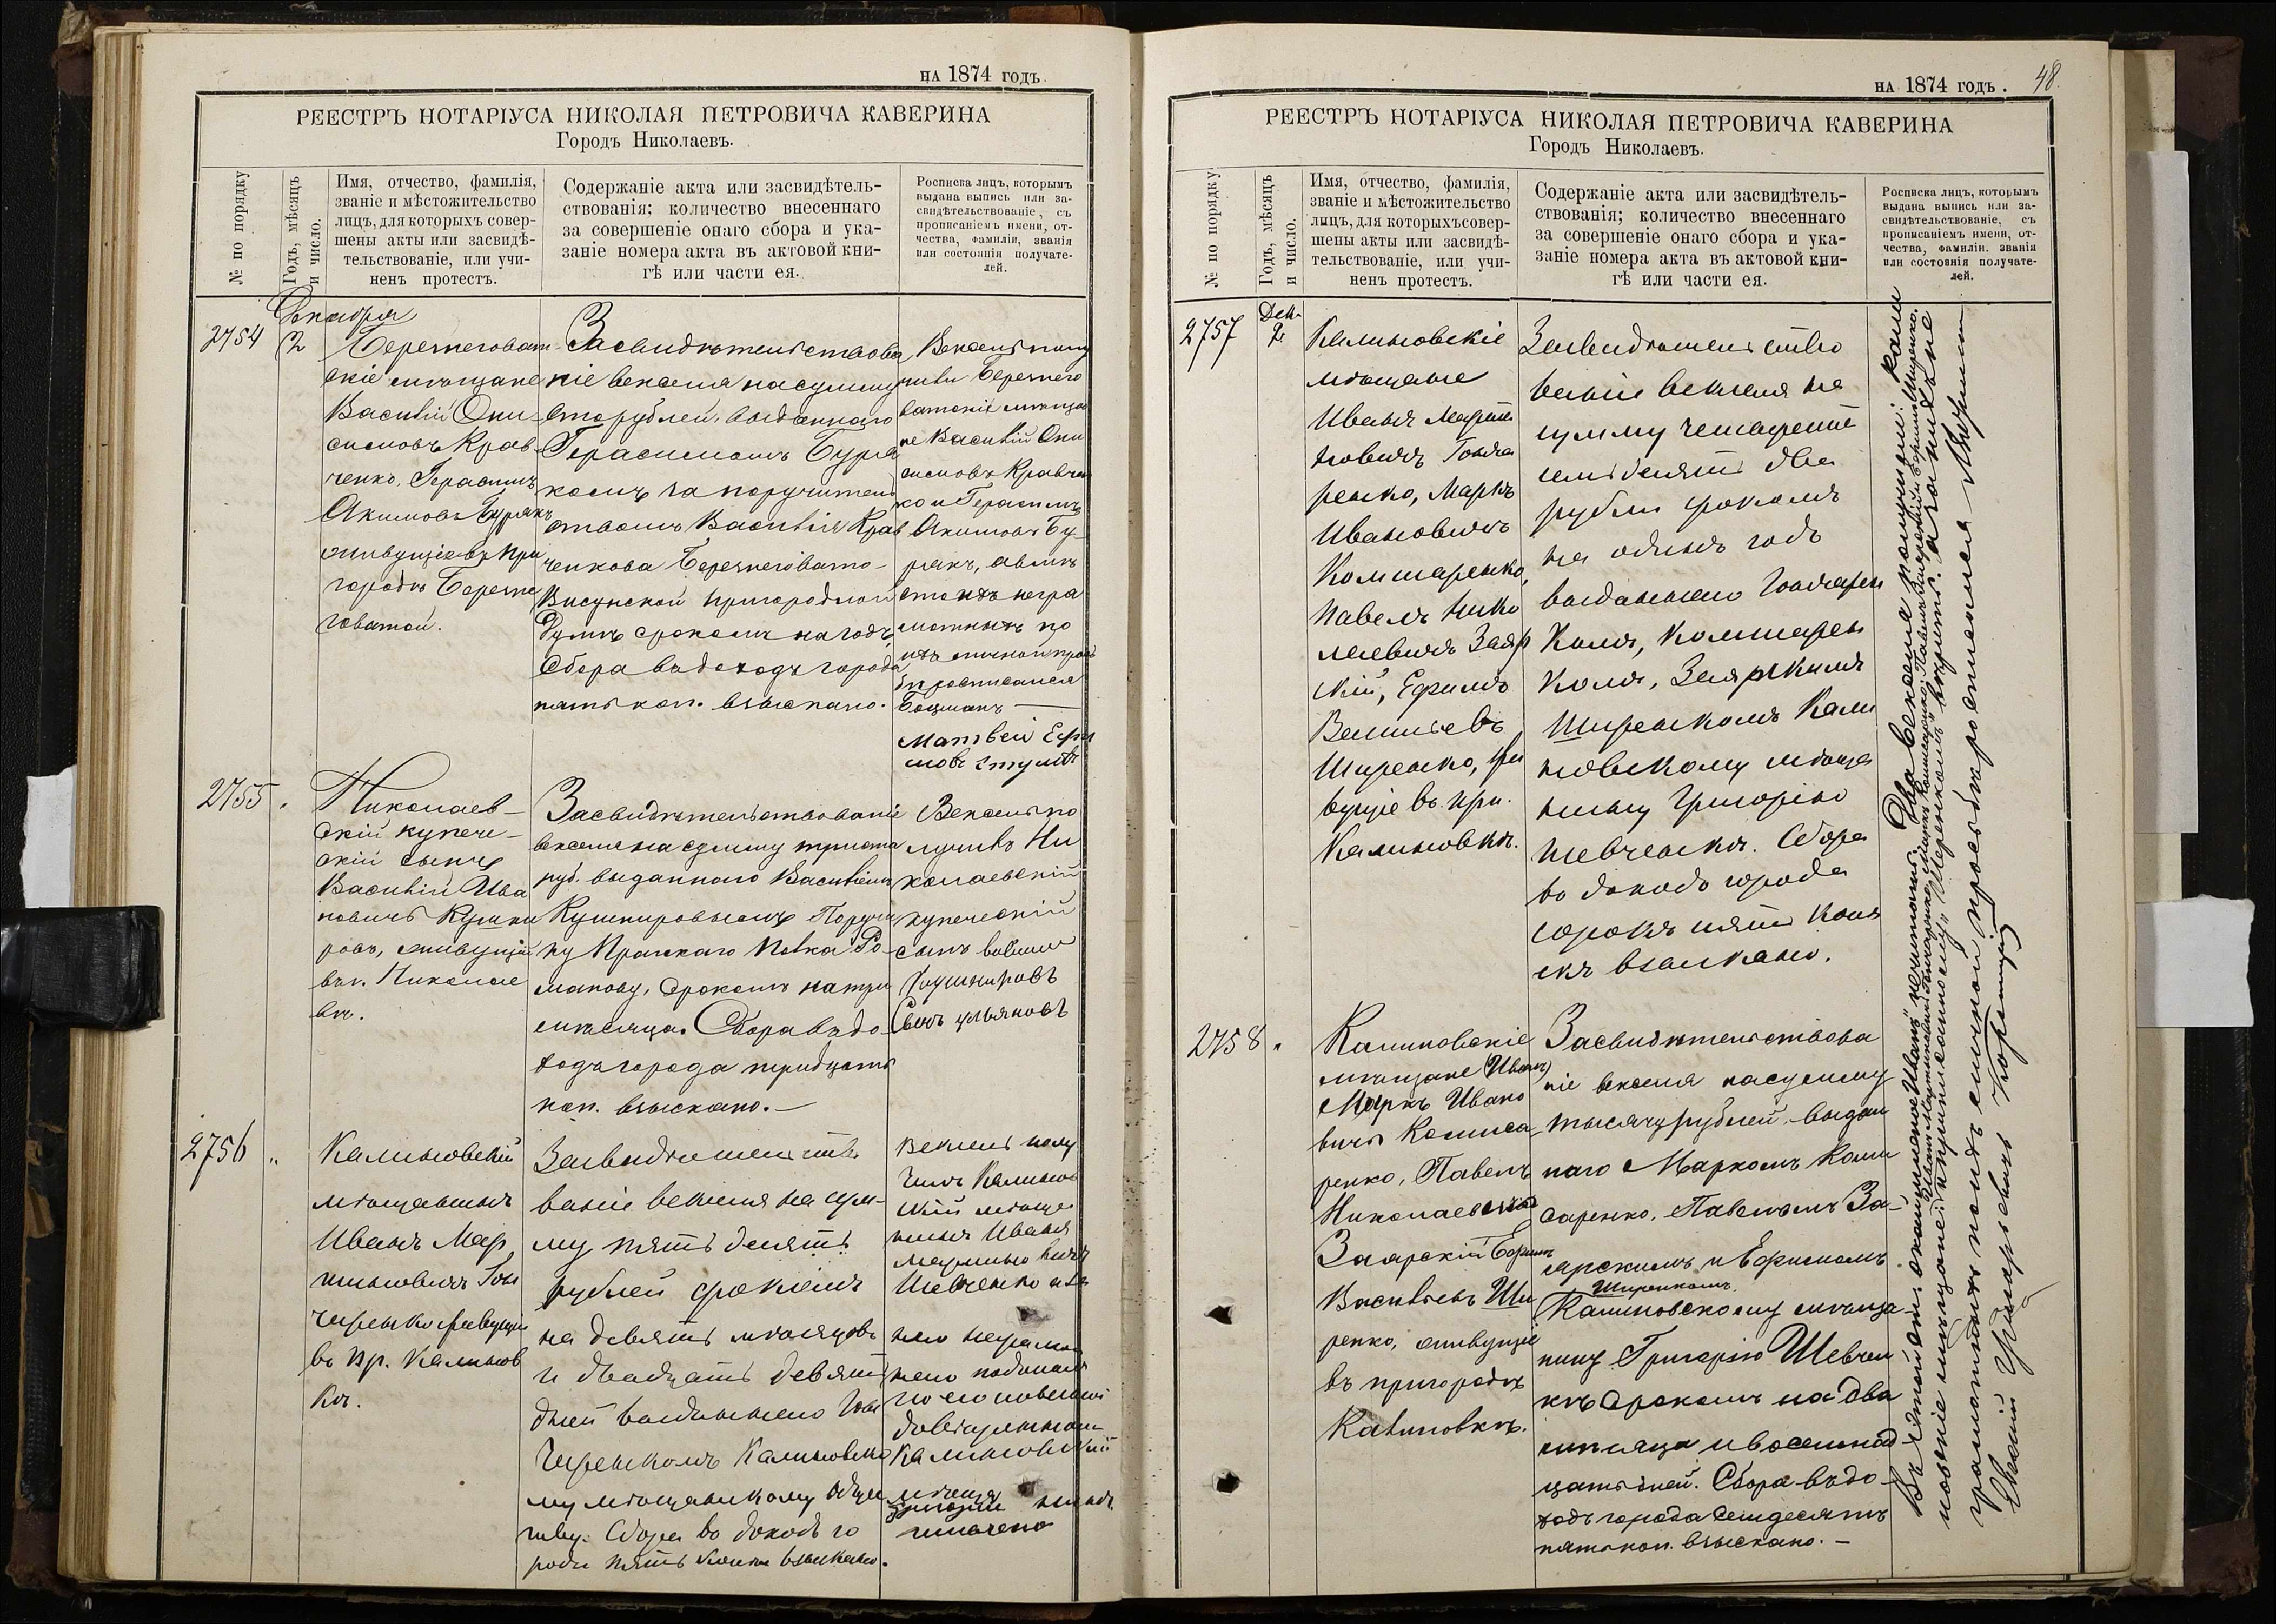 НА 1874 ГОДЪ.
РЕЕСТРЪ НОТАРІУСА НИКОЛАЯ ПЕТРОВИЧА КАВЕРИНА
Городъ Николаевъ.
№ по порядку
Годъ, мѣсяцъ
и число.
Имя, отчество, фамилія,
званіе и мѣстожительство
лицъ, для которыхъ совер-
шены акты или засвидѣ-
тельствованіе, или учи-
ненъ протестъ.
Содержаніе акта или засвидѣтель-
ствованія; количество внесеннаго
за совершеніе онаго сбора и ука-
заніе номера акта въ актовой кни-
гѣ или части ея.
Росписка лицъ, которымъ
выдана выпись или за-
свидѣтельствованіе, съ
прописаніемъ имени, от-
чества, фамиліи, званія
или состоянія получате-
лей.
Декабря
2754
2
Березнеговат-
скіе мѣщане
Василій Они-
симовъ Крав-
ченко, Герасимъ
Акимовъ Бурякъ
живущіе въ при
городѣ Березне
говатой.
Засвидѣтельствова
ніе векселя на сумму
сто рублей, выданнаго
Герасимомъ Буря
комъ за поручитель
ствомъ Василія Крав
ченкова Березнеговато-
Висунской пригородной
Думѣ срокомъ на годъ,
Сбора въ доходъ города
пять коп. взыскано.
Вексель полу
чили Березнего
ватскіе мѣща
не Василій Они
симовъ Кравчен
ко и Герасимъ
Акимовъ Бу-
рякъ, а вмѣ
сто ихъ негра
мотныхъ по
ихъ личной прось
бѣ росписался
Боцманъ
Матвей Ефи
мовъ
2755 "
Николаев-
скій купече-
скій сынъ
Василій Ива
новичъ Кушни
ровъ, живущій
въ г. Николае
вѣ.
Засвидѣтельствованіе
векселя на сумму триста
руб. выданнаго Василіемъ
Кушнировымъ Поручи
ку Пражскаго Полка Ро-
манову, срокомъ на три
мѣсяца. Сбора въ до-
ходъ города тридцать
коп. взыскано.—
Вексель по
лучилъ Ни
колаевскій
купеческій
сынъ васили
Кушнировъ
2756 "
Калиновскій
мѣщанинъ
Иванъ Мар
тыновичъ Гон
чаренко живущій
въ пр. Калинов
кѣ.
Засвидѣтельство
ваніе векселя на сум-
му пятьдесятъ
рублей срокомъ
на девять мѣсяцовъ
и двадцать девять
дней выданнаго Гон
чаренкомъ Калиновско
му мѣщанскому обще
ству. Сбора въ доходъ го
рода пять копѣекъ взыскано.
Вексель полу
чилъ Калинов
скій мѣща
нинъ Иванъ
НА 1874 ГОДЪ.
48.
РЕЕСТРЪ НОТАРІУСА НИКОЛАЯ ПЕТРОВИЧА КАВЕРИНА
Городъ Николаевъ.
№ по порядку
Годъ, мѣсяцъ
и число.
Имя, отчество, фамилія,
званіе и мѣстожительство
лицъ, для которыхъ совер-
шены акты или засвидѣ-
тельствованіе, или учи-
ненъ протестъ.
Содержаніе акта или засвидѣтель-
ствованія; количество внесеннаго
за совершеніе онаго сбора и ука-
заніе номера акта въ актовой кни-
гѣ или части ея.
Росписка лицъ, которымъ
выдана выпись или за-
свидѣтельствованіе, съ
прописаніемъ имени, от-
чества, фамиліи, званія
или состоянія получате-
лей.
2757
Дек.
2
Калиновскіе
мѣщане
Иванъ Марты
новичъ Гонча
ренко, Маркъ
Ивановичъ
Комисаренко,
Павелъ Нико
лаевичъ Заяр
скій, Ефимъ
Васильевъ
Ширенко, жи
вущіе въ при.
Калиновкѣ.
Засвидѣтельство
ваніе векселя на
сумму четыреста
семьдесятъ два
рубли срокомъ
на одинъ годъ
выданнаго Гончарен
комъ, Комисарен
комъ, Заярскимъ
Ширенкомъ Кали
новскому мѣща
нину Григорію
Шевченкѣ. Сбора
въ доходъ города
сорокъ пять копѣ
екъ взыскано.
2758 "
Калиновскіе
мѣщане (Иванъ)
Маркъ Ивано
вичъ Комиса
ренко, Павелъ
Николаевичъ
Заярскій Ефимъ
Васильевъ Ши
ренко, живущіе
въ пригородѣ
Калиновкѣ.
Засвидѣтельствова
ніе векселя на сумму
тысячу рублей, выдан
наго Маркомъ Коми
саренко, Павломъ За-
ярскимъ и Ефимомъ
Ширенкомъ
Калиновскому мѣща-
нину Григорію Шевчен
кѣ срокомъ на два
мѣсяца и восемнад
цать дней. Сбора въ до-
ходъ города семдесятъ
пять коп. взыскано.—
Два векселя получили: Кали
новскіе мѣщане:
Иванъ Мартыновъ Гончаренко, Маркъ Комисаренко, Павелъ Заярскій и Ефимъ Ширенко,
грамотныхъ по ихъ личной просьбѣ росписался